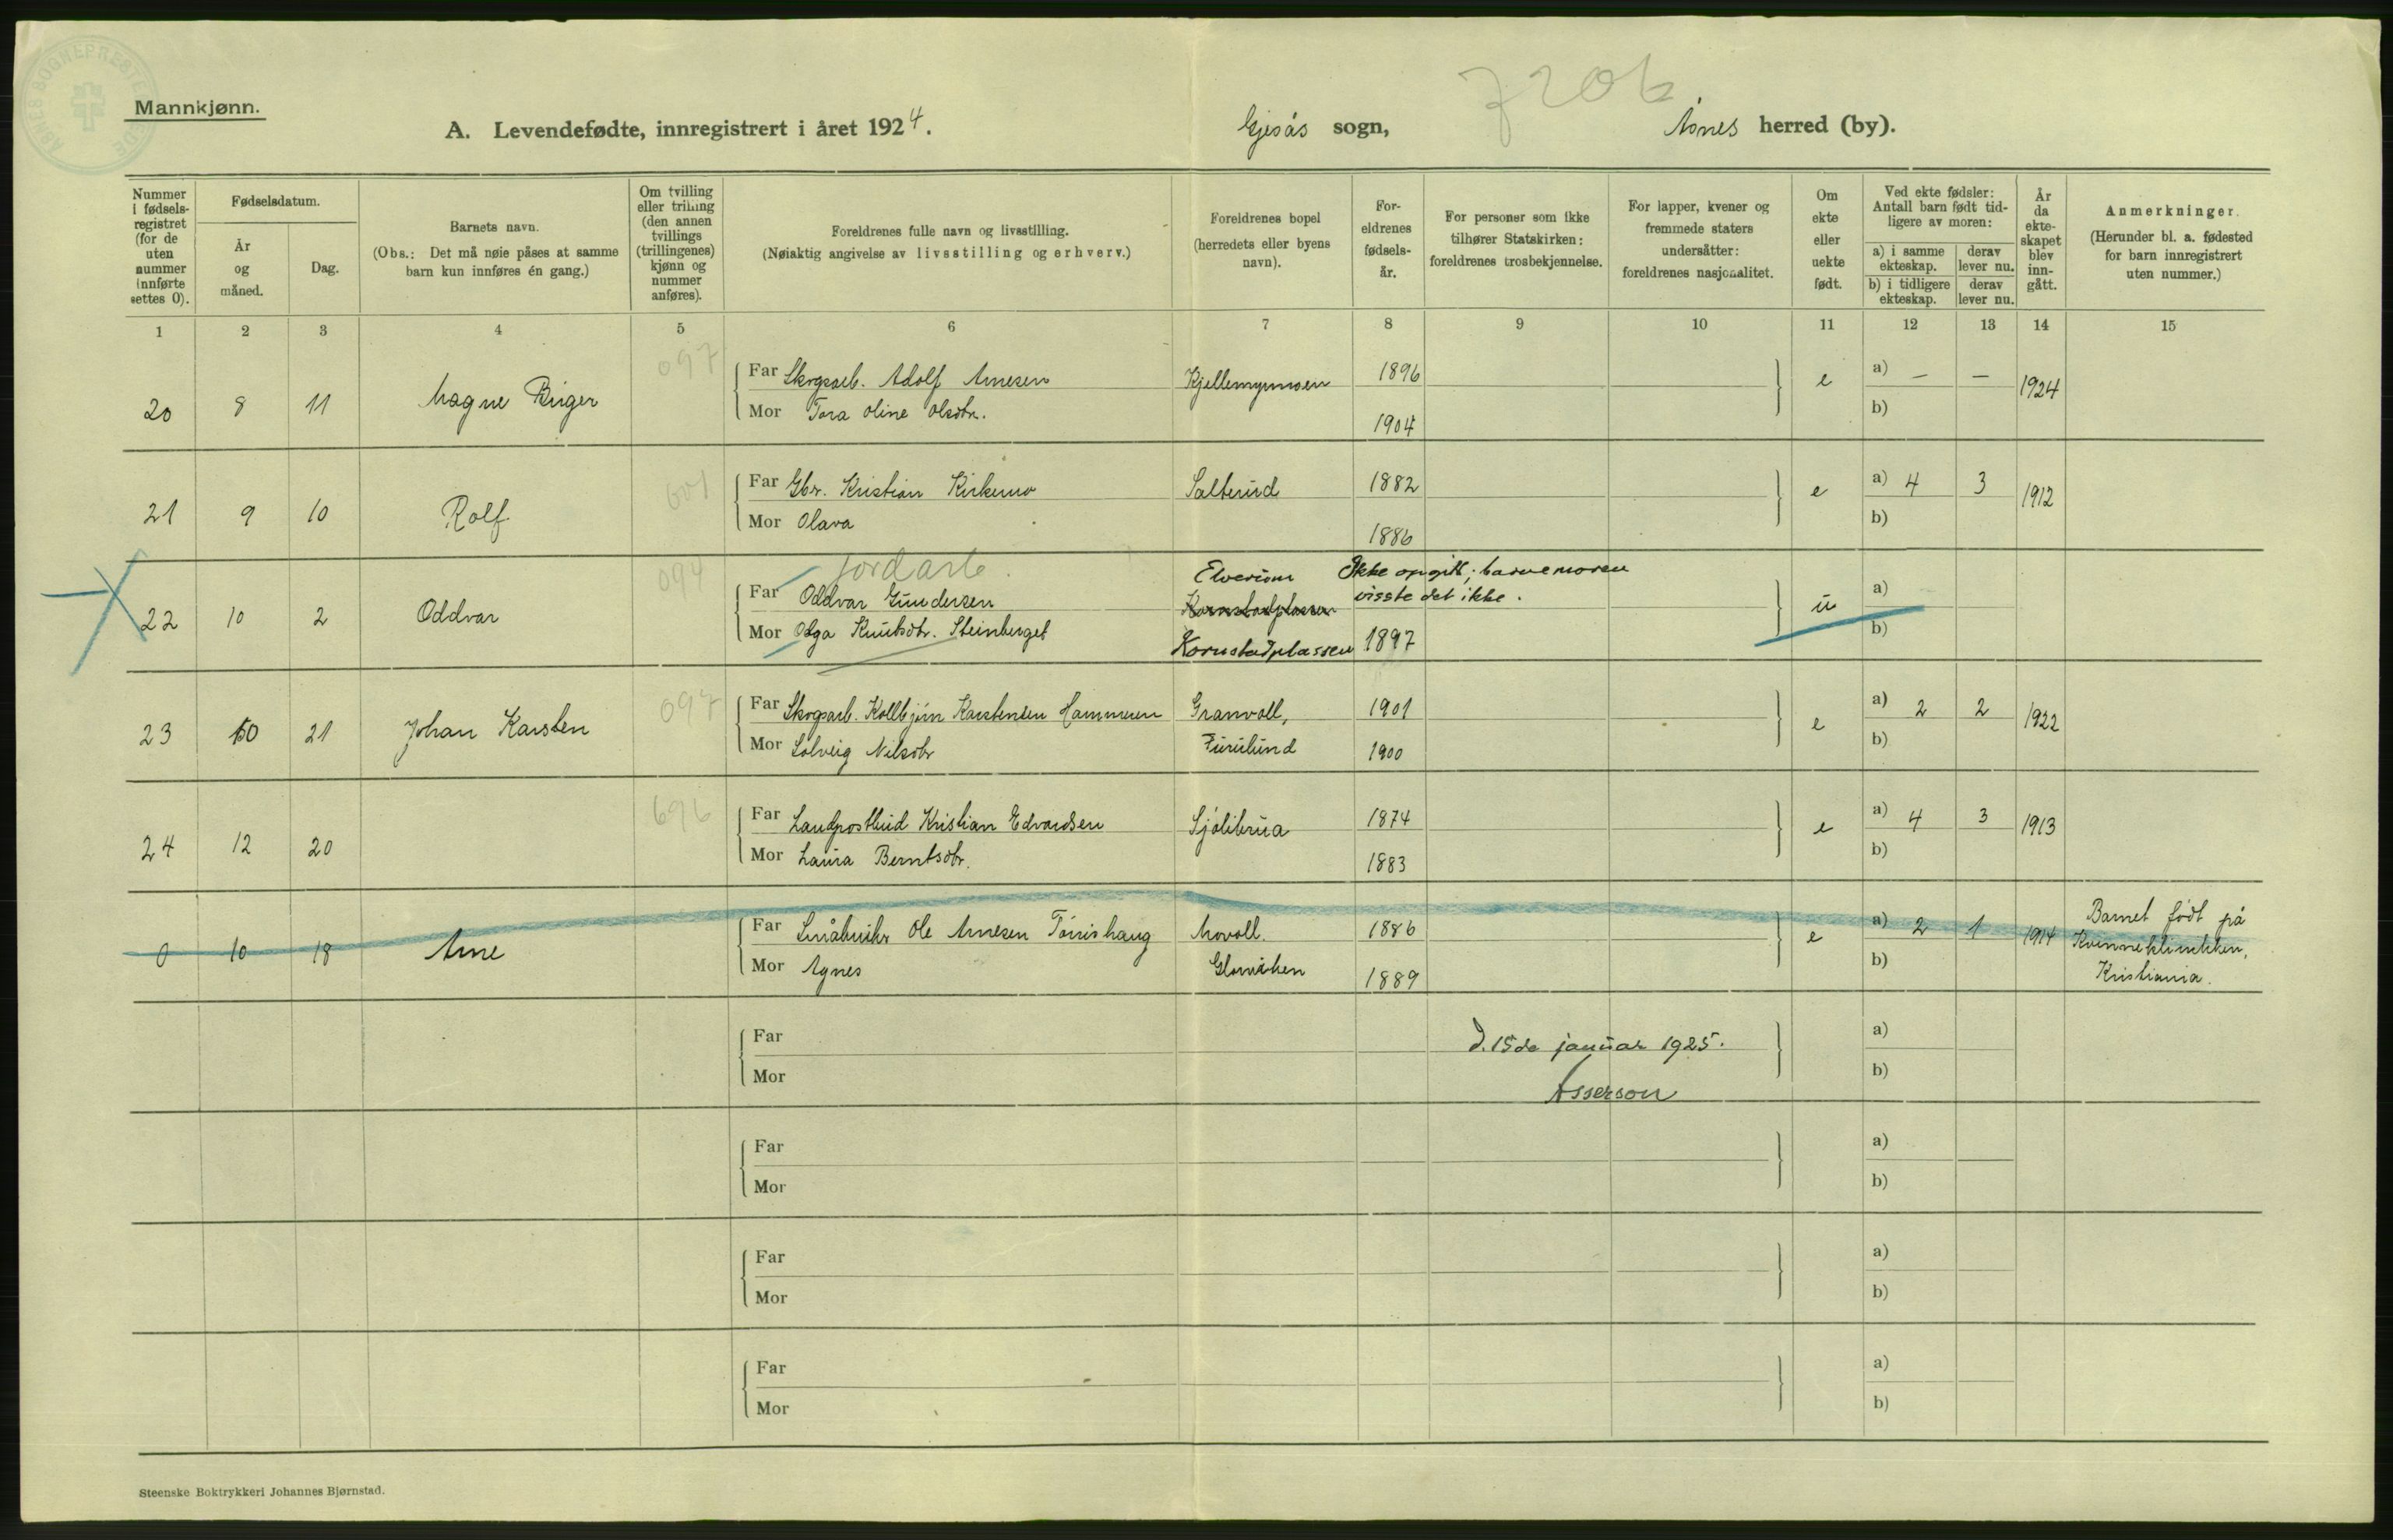 7206
Mannkjønn.
A. Levendefødte, innregistrert i året 1924.
Gjesås sogn,
Åsnes herred (by).
Nummer i fødsels-registret (for de uten nummer innførte settes 0).
Fødselsdatum.
År og måned.
Dag.
Barnets navn.
(Obs.: Det må nøie påses at samme barn kun innføres én gang.)
Om tvilling eller trilling (den annen tvillings (trillingenes) kjønn og nummer anføres).
Foreldrenes fulle navn og livsstilling.
(Nøiaktig angivelse av livsstilling og erhverv.)
Foreldrenes bopel
(herredets eller byens navn).
For-eldrenes fødsels-år.
For personer som ikke tilhører Statskirken:
foreldrenes trosbekjennelse.
For lapper, kvener og fremmede staters undersåtter:
foreldrenes nasjonalitet.
Om ekte eller uekte født.
Ved ekte fødsler:
Antall barn født tid-ligere av moren:
a) i samme ekteskap.
derav lever nu.
b) i tidligere ekteskap.
derav lever nu.
År da ekte-skapet blev inn-gått.
Anmerkninger.
(Herunder bl. a. fødested for barn innregistrert uten nummer.)
1 2 3 4 5 6 7 8 9 10 11 12 13 14 15
20 8 11 Magne Birger 097
Far Skogsarb. Adolf Arnesen Kjellemyrmoen 1896 e a) — — 1924
Mor Tora Oline Olsdtr. 1904 b)
21 9 10 Rolf 601
Far Gbr. Kristian Kirkemo Salterud 1882 e a) 4 3 1912
Mor Olava 1886 b)
jordarb.
22 10 2 Oddvar 094
Far Oddvar Gundersen Elverum Ikke opgitt; barnemoren visste det ikke. u a)
Kornstadplassen
Mor Olga Knutsdtr. Steinberget Kornstadplassen 1897 b)
23 10 21 Johan Karsten 097
Far Skogsarb. Kolbjørn Karstensen Hammeren Granvoll, 1901 e a) 2 2 1922
Mor Solveig Nilsdtr Furulund 1900 b)
24 12 20 696
Far Landpostbud Kristian Edvardsen Sjøliбrua 1874 e a) 4 3 1913
Mor Laura Berntsdtr. 1883 b)
0 10 18 Arne
Far Småbruker Ole Arnesen Tørrishaug Movoll. 1886 e a) 2 1 1914 Barnet født på
Mor Agnes 1889 b) Kvinneklinikken,
Kristiania.
Far a)
d. 15de januar 1925.
Mor b)
Asserson
Far a)
Mor b)
Far a)
Mor b)
Far a)
Mor b)
Steenske Boktrykkeri Johannes Bjørnstad.